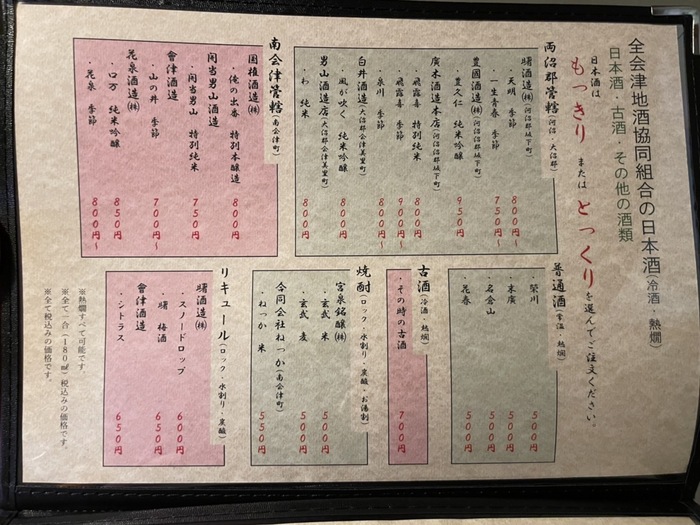 全会津地酒協同組合の日本酒(冷酒・熱燗)
日本酒・古酒・その他の酒類
日本酒は もっきり または とっくり を選んでご注文ください。
両沼郡管轄(河沼・大沼郡)
曙酒造㈱(河沼郡坂下町)
・天明 季節 800円〜
・一生青春 季節 750円〜
豊國酒造㈾(河沼郡坂下町)
・豊久仁 純米吟醸 950円
廣木酒造本店(河沼郡坂下町)
・飛露喜 特別純米 800円
・飛露喜 季節 900円〜
・泉川 季節 800円〜
白井酒造(大沼郡会津美里町)
・風が吹く 純米吟醸 800円
男山酒造店(大沼郡会津美里町)
・わ 純米 800円
南会津管轄(南会津町)
国権酒造㈱
・俺の出番 特別本醸造 800円
開当男山酒造
・開当男山 特別純米 750円
會津酒造
・山の井 季節 700円〜
花泉酒造㈱
・口万 純米吟醸 850円
・花泉 季節 800円〜
普通酒(常温・熱燗)
・榮川 500円
・末廣 500円
・名倉山 500円
・花春 500円
古酒(冷酒・熱燗)
・その時の古酒 700円
焼酎(ロック・水割り・炭酸・お湯割)
宮泉銘醸㈱
・玄武 米 500円
・玄武 麦 500円
合同会社ねっか(南会津町)
・ねっか 米 550円
リキュール(ロック・水割り・炭酸)
曙酒造㈱
・スノードロップ 600円
・曙 梅酒 650円
會津酒造
・シトラス 650円
※熱燗すべて可能です。
※全て一合(180㎖)税込みの価格です。
※全て税込みの価格です。